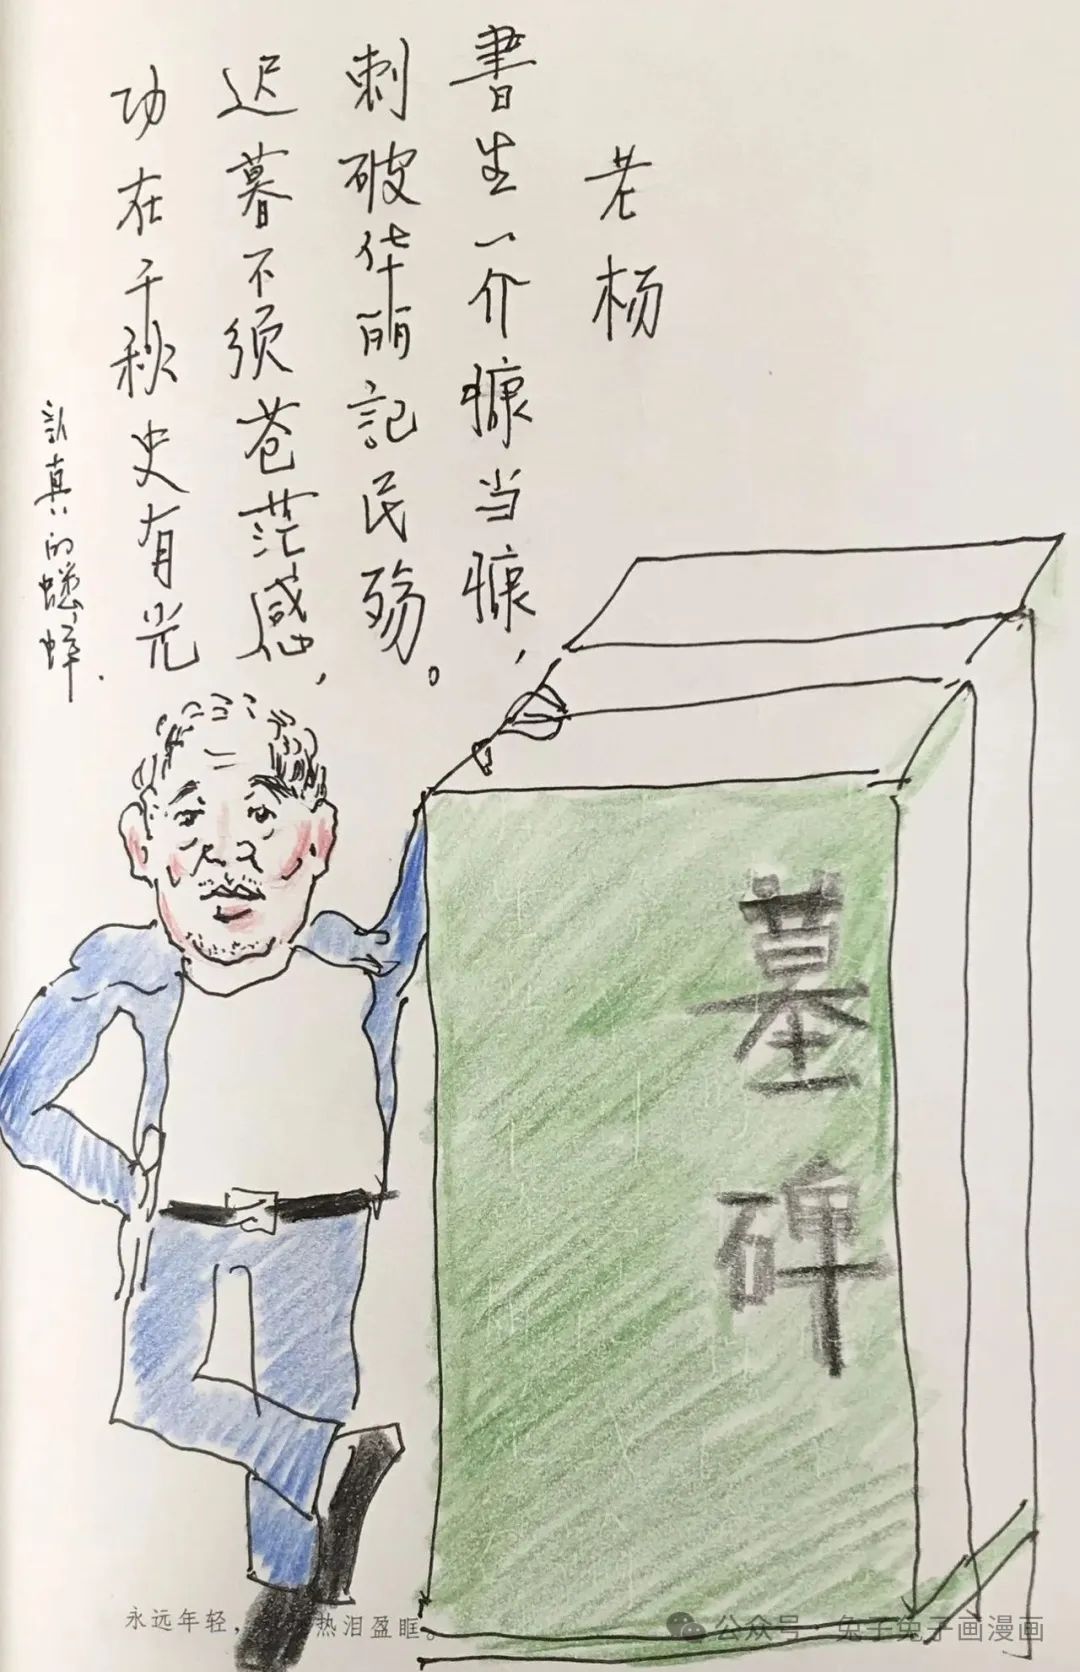 老杨
書生一介慷当慷，
刺破华丽記民殇。
迟暮不须苍茫感，
功在千秋史有光
認真的蟋蟀.
墓碑
永远年轻，热泪盈眶。
公众号·兔子兔子画漫画